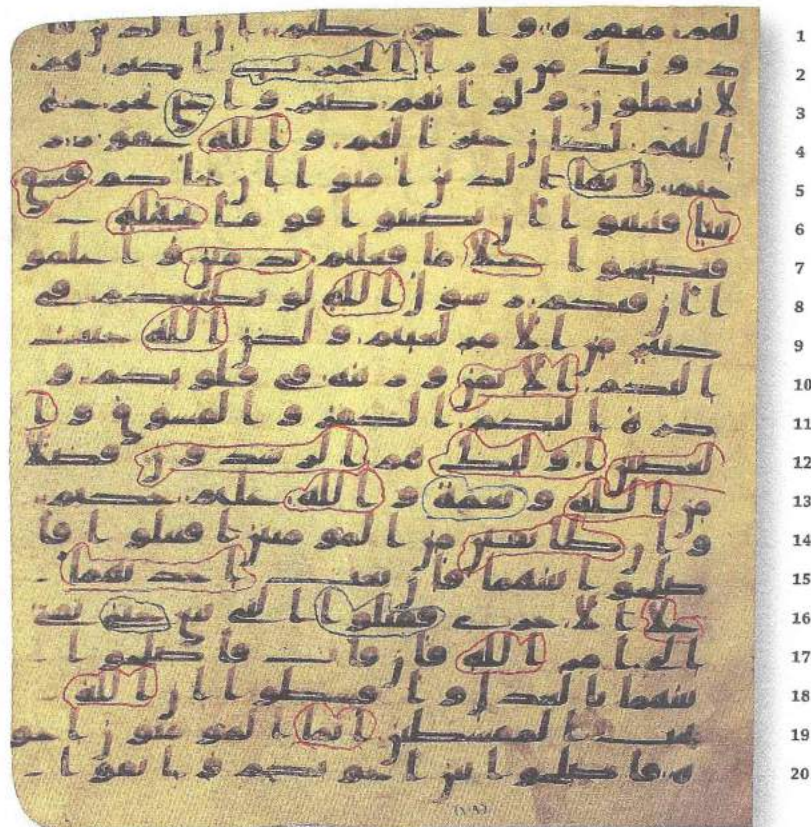 1 لهم مغفرة واجر عظيم ان الذين ينا
2 دونك من ورا الحجرت اكثرهم
3 لا يعقلون ولو انهم صبروا حتى تخرج
4 اليهم لكان خيرا لهم والله غفور ر
5 حيم يايها الذين امنوا ان جاكم فسق
6 بنبا فتبينوا ان تصيبوا قوما بجهلة
7 فتصبحوا على ما فعلتم ندمين واعلموا
8 ان فيكم رسول الله لو يطيعكم في
9 كثير من الامر لعنتم ولكن الله حبب
10 اليكم الايمن وزينه في قلوبكم و
11 كره اليكم الكفر والفسوق وا
12 لعصين اوليك هم الرشدون فضلا
13 من الله ونعمة والله عليم حكيم
14 وان طايفتن من المومنين اقتتلوا فا
15 صلحوا بينهما فان بغت احدىهما
16 على الاخرى فقتلوا التي تبغي حتى تفي
17 الى امر الله فان فات فاصلحوا
18 بينهما بالعدل واقسطوا ان الله
19 يحب المقسطين انما المومنون اخو
20 ة فاصلحوا بين اخويكم واتقوا